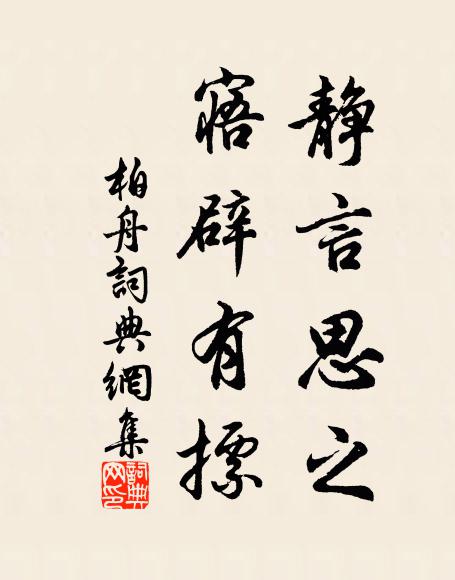 静言思之
寤辟有摽
柏舟詞典網集
詞典网印